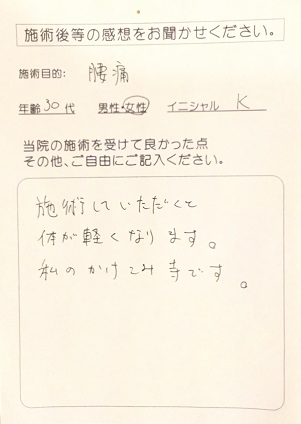 施術後等の感想をお聞かせください。
施術目的: 腰痛
年齢30代 男性・女性 イニシャル K
当院の施術を受けて良かった点
その他、ご自由にご記入ください。
施術していただくと
体が軽くなります。
私のかけこみ寺です。